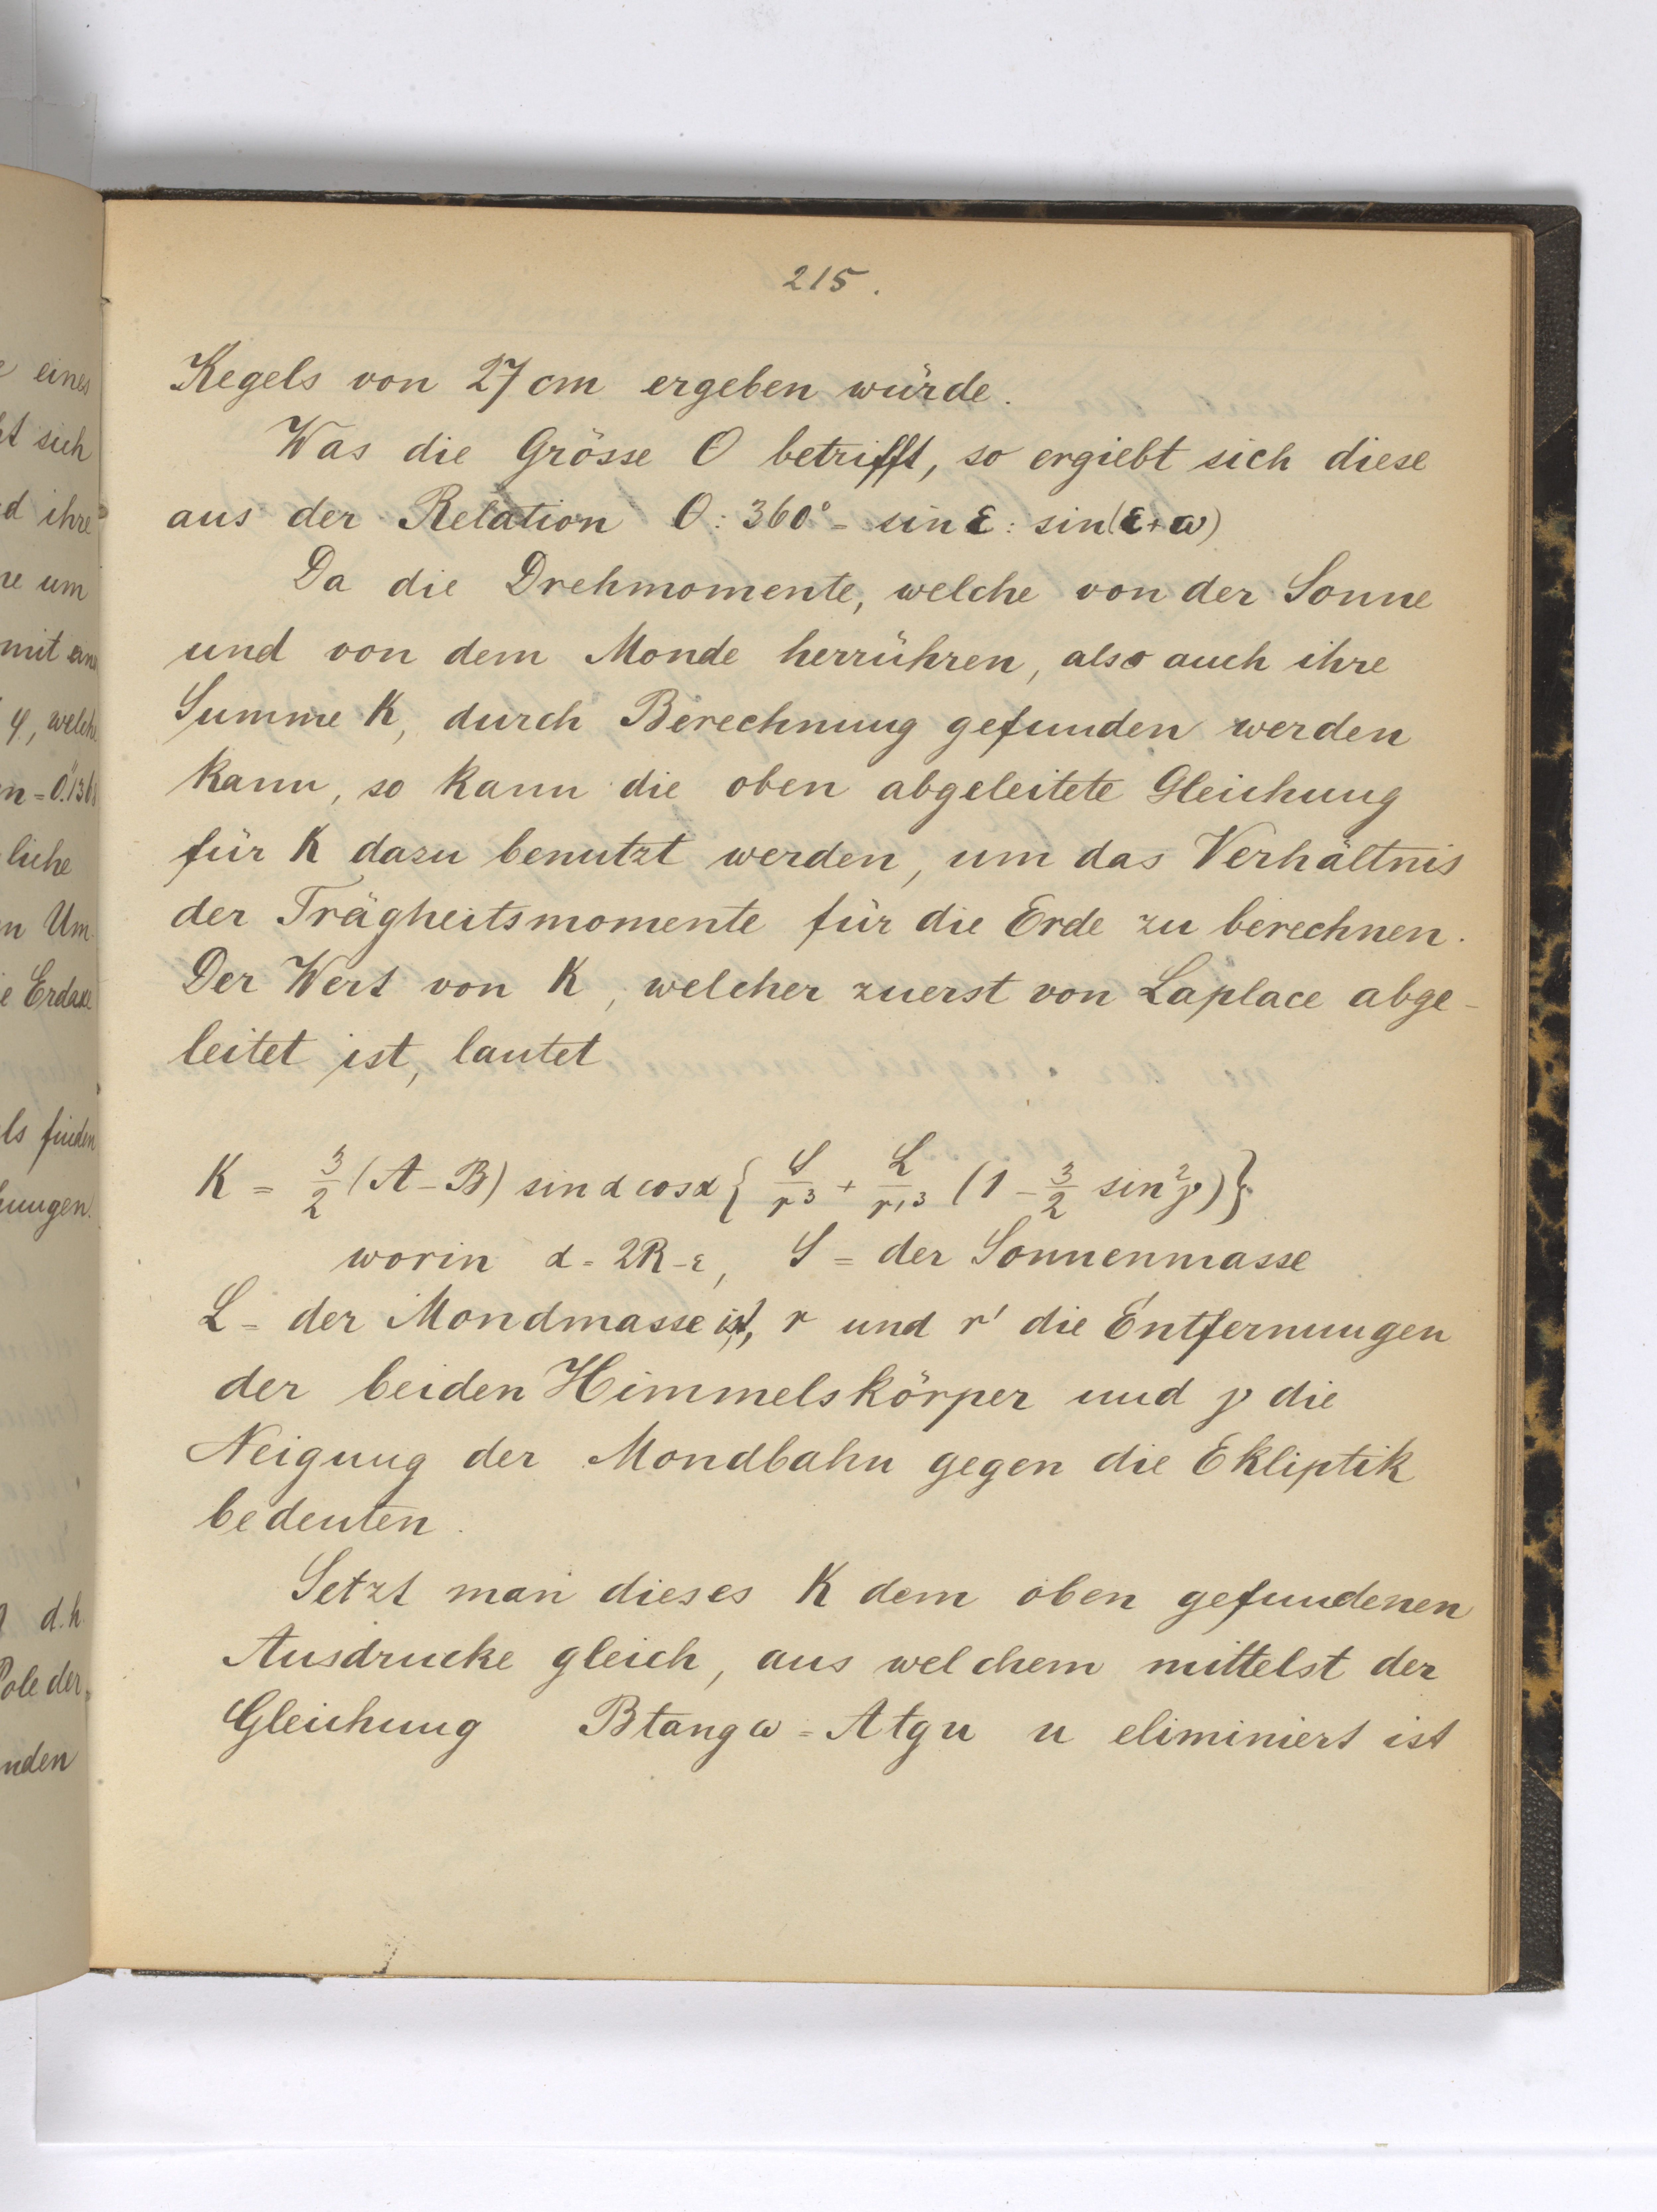 215.
Kegels von 27 cm ergeben würde.
Was die Grösse O betrifft, so ergiebt sich diese
aus der Relation O : 360° = sin ε : sin(ε+ω)
Da die Drehmomente, welche von der Sonne
und von dem Monde herrühren, also auch ihre
Summe K, durch Berechnung gefunden werden
kann, so kann die oben abgeleitete Gleichung
für K dazu benutzt werden, um das Verhältnis
der Trägheitsmomente für die Erde zu berechnen.
Der Wert von K, welcher zuerst von Laplace abge-
leitet ist, lautet
K = 3/2 (A-B) sin α cos α { S/r³ + L/r'³ (1 - 3/2 sin²γ) }
worin α = 2R-ε, S = der Sonnenmasse
L = der Mondmasse ist, r und r' die Entfernungen
der beiden Himmelskörper und γ die
Neigung der Mondbahn gegen die Ekliptik
bedeuten.
Setzt man dieses K dem oben gefundenen
Ausdrucke gleich, aus welchem mittelst der
Gleichung B tang ω = A tg u u eliminiert ist
eines
sich
d ihre
um
mit
φ, welche
liche
n Um
e Erdaxe
ls finden
ungen.
d.h.
Pole der
nden